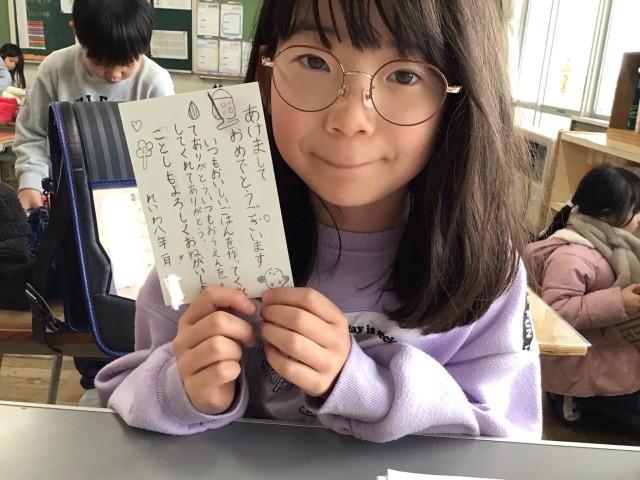 あけまして
おめでとうございます
いつもおいしいごはんを作ってくれ
てありがとう。いつもおうえんを
してくれてありがとう。
ことしもよろしくおねがいし
れいわ八年一月